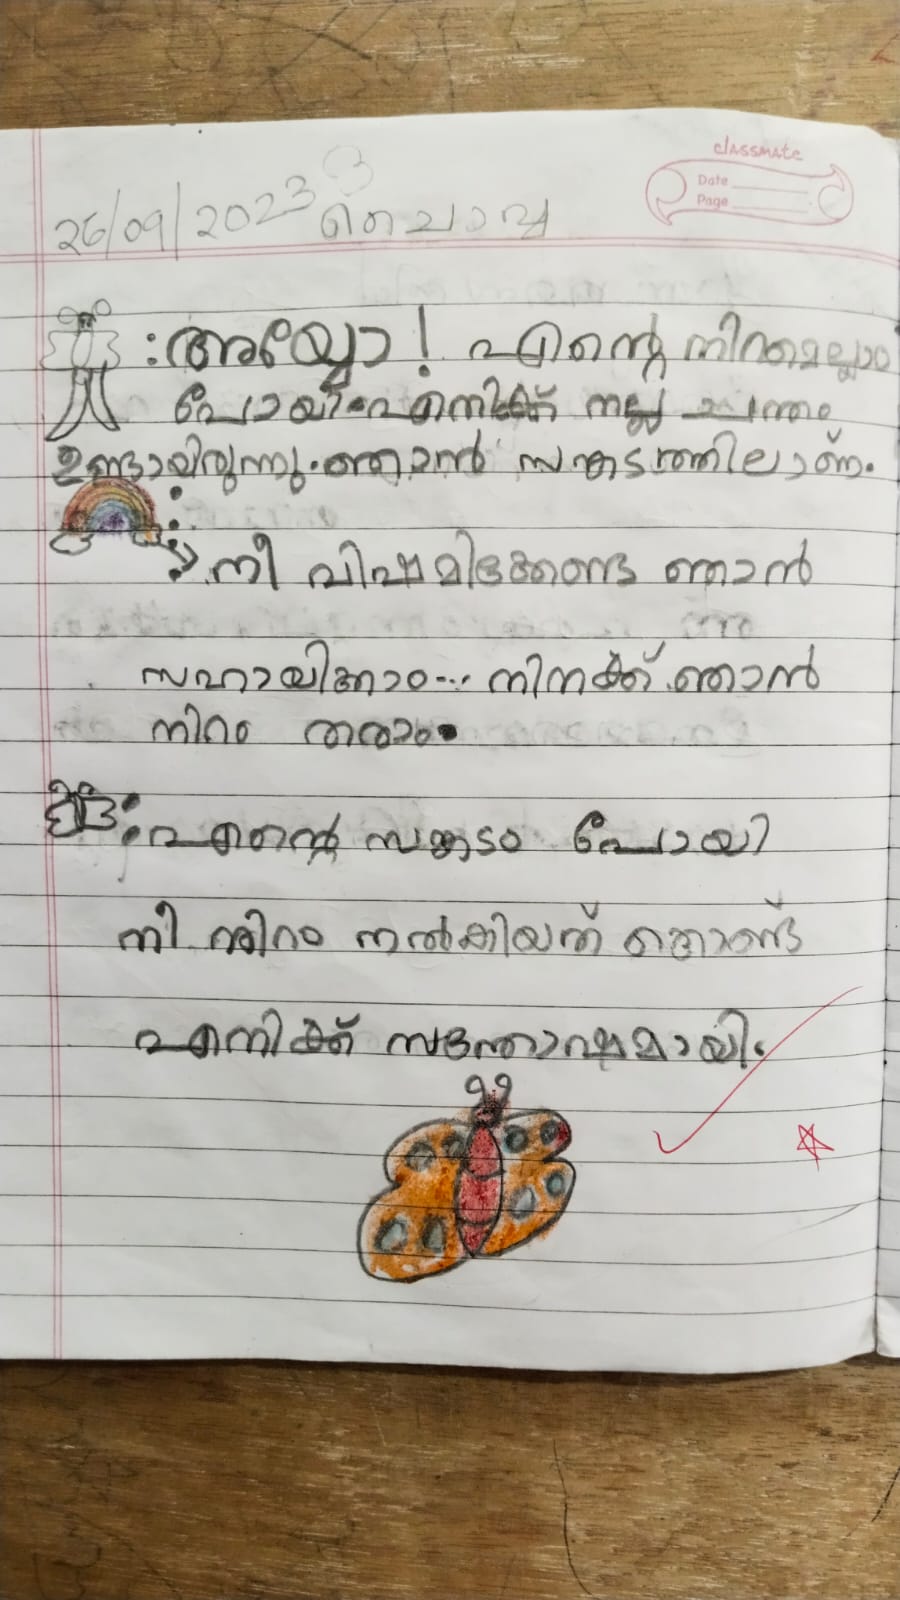 classmate
Date
Page
26/09/2023 ചൊവ്വ
: അയ്യോ! എന്റെ നിറമെല്ലാം
പോയി. എനിക്ക് നല്ല ചന്തം
ഉണ്ടായിരുന്നു. ഞാൻ സങ്കടത്തിലാണ്.
: നീ വിഷമിക്കേണ്ട ഞാൻ
സഹായിക്കാം... നിനക്ക് ഞാൻ
നിറം തരാം.
: എന്റെ സങ്കടം പോയി
നീ നിറം നൽകിയത് കൊണ്ട്
എനിക്ക് സന്തോഷമായി.